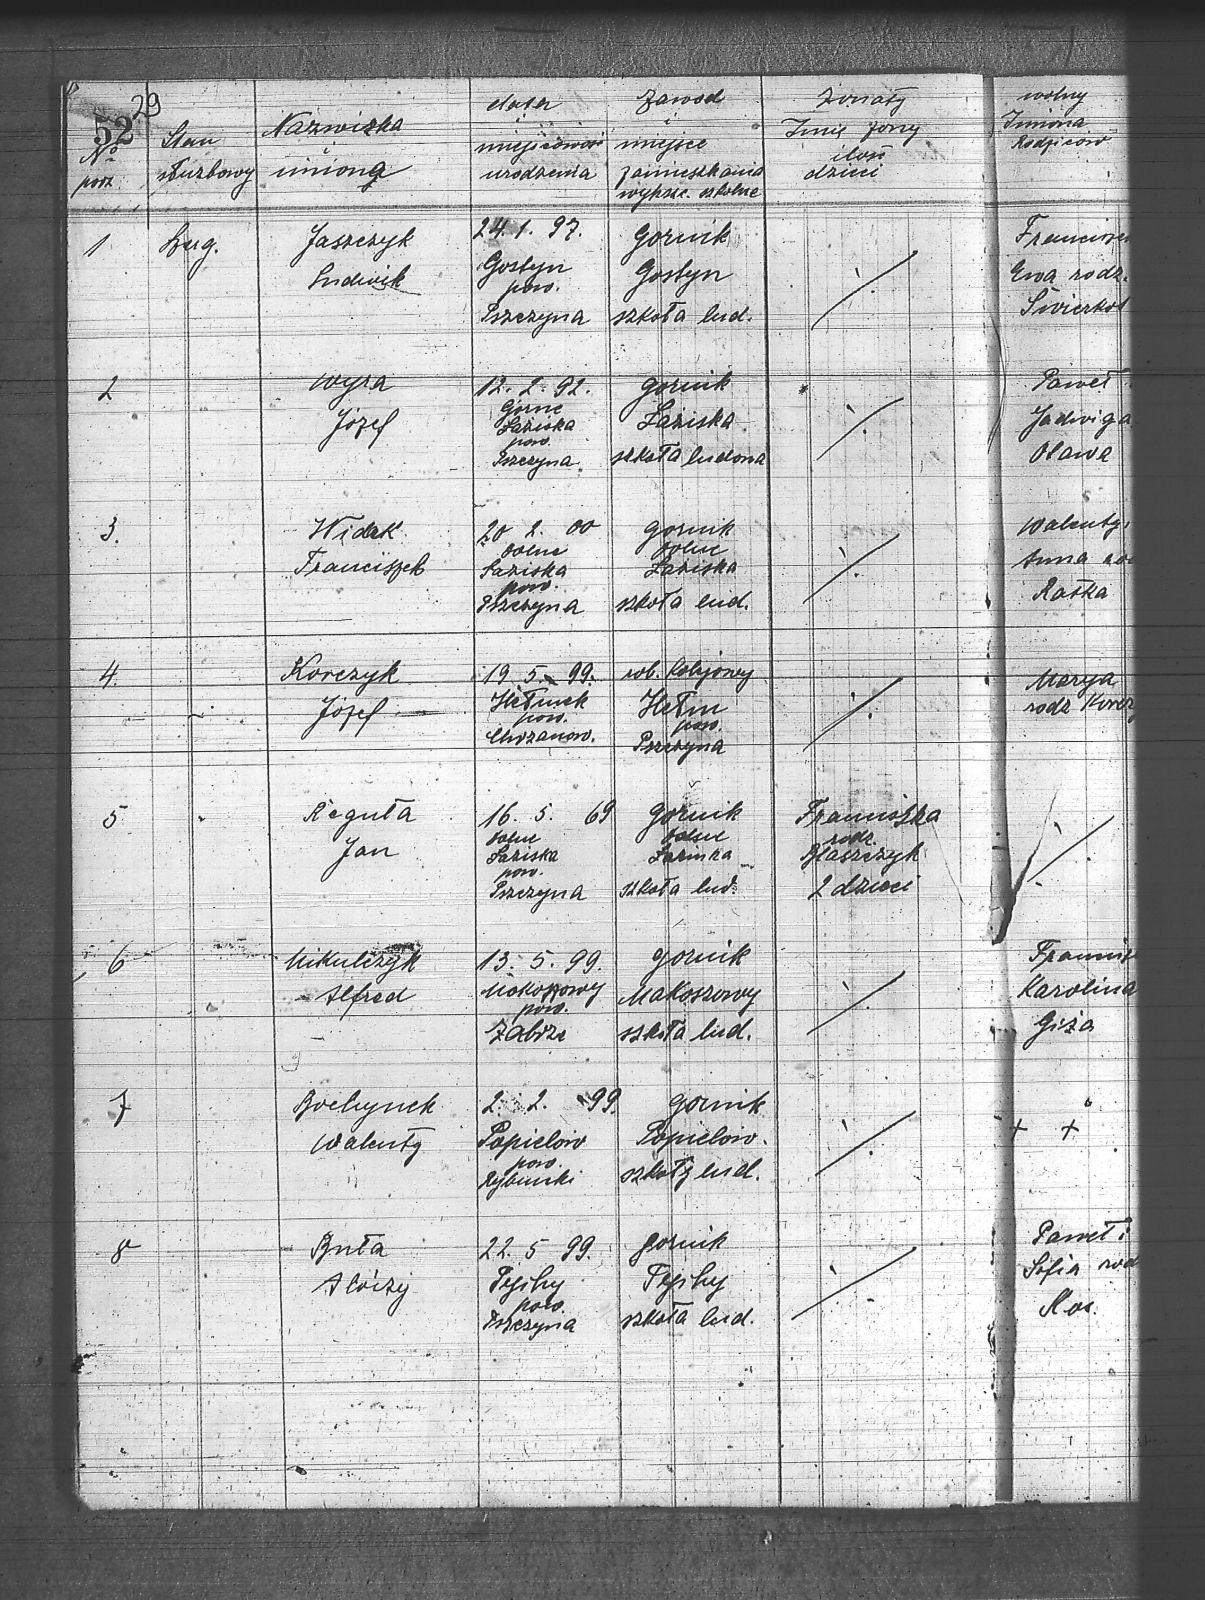 29
52
No porz
Stan służbowy
Nazwiska i imiona
data i miejscowość urodzenia
Zawod i miejsce zamieszkania wyksz. szkolne
Żonaty Imię żony ilość dzieci
wolny Imiona Rodziców
1 Szrg. Jaszczyk 24. 1. 97. Gornik Francisze
Ludwik Gostyn Gostyn Ewa rodz.
pow.
Pszczyna szkoła lud. Świerkot
2 Wyra 12. 2. 92. gornik Paweł
Józef Górne Łaziska Łaziska Jadwiga
pow.
Pszczyna szkoła ludowa Oława
3. Widek 20 2. 00 gornik Walenty
Franciszek Dolne Łaziska Dolne Łaziska Anna
pow.
Pszczyna szkoła lud. Ratka
4. Korczyk 19. 5. 99. rob. kolejowy Marya
Józef Hełmek Hełm rodz Korczy
pow. pow.
Chrzanow. Pszczyna
5 Reguła 16. 5. 69 Gornik Franciszka
Jan Dolne Łaziska Dolne rodz. Błaszczyk
pow.
Pszczyna szkoła lud. 2 dzieci
6 Mikulczyk 13. 5. 99. gornik
Alfred Makoszowy Makoszowy Karolina
pow.
Zabrze szkoła lud. Giża
7 Bochynek 2. 2. 99. gornik + +
Walenty Popielow Popielow.
pow.
Rybnicki szkoły lud.
8 Buła 22. 5 99. gornik Paweł i
Aloizy Tychy Tychy Sofia rod
pow.
Pszczyna szkoła lud. Kos.